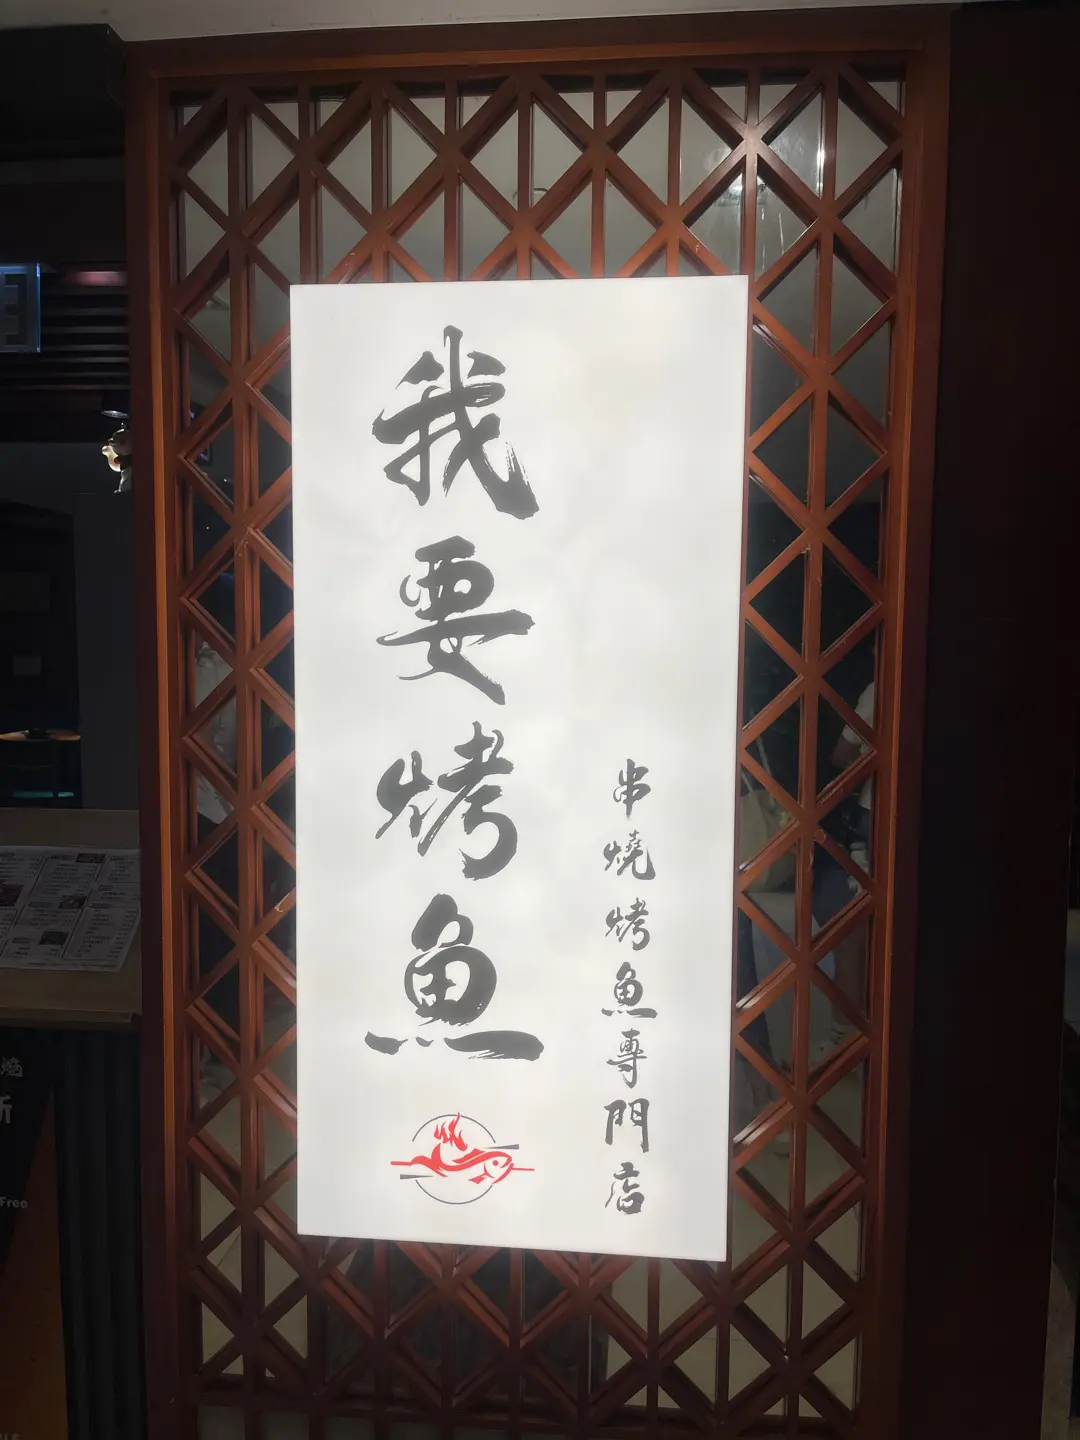 我要烤魚
串燒烤魚專門店
Free